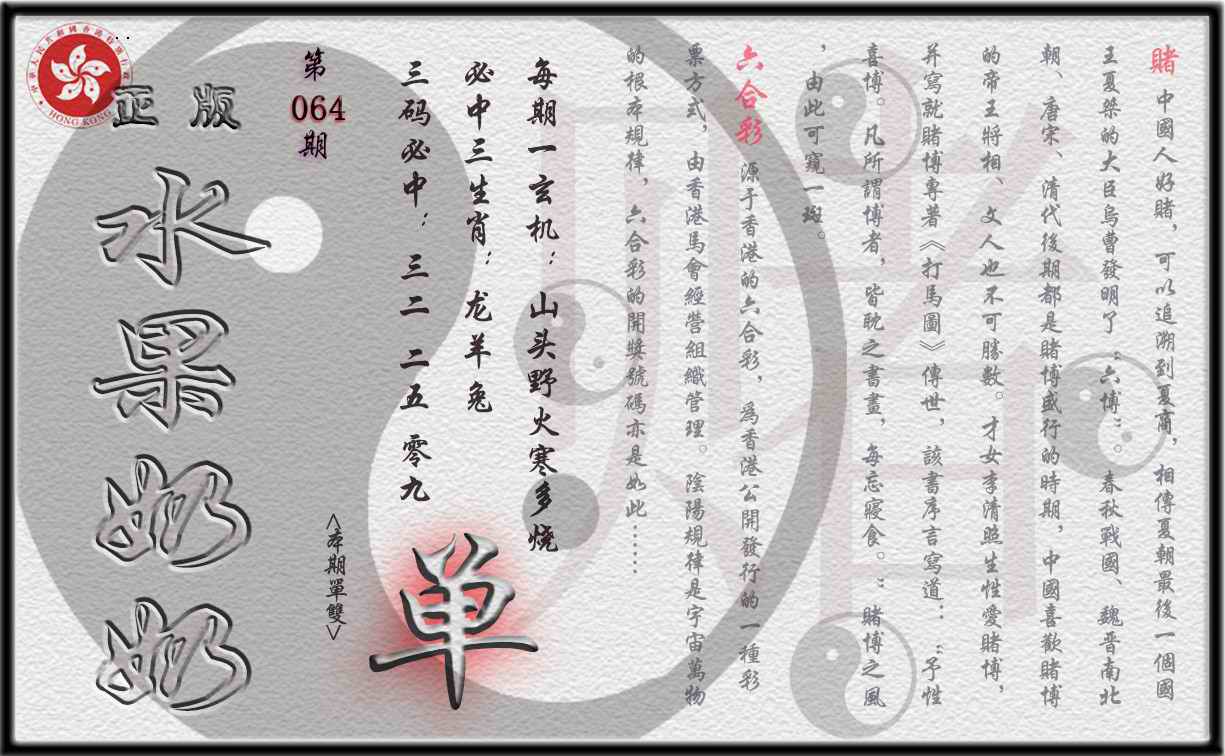 賭 中國人好賭，可以追溯到夏商，相傳夏朝最後一個國
王夏桀的大臣烏曹發明了“六博”。春秋戰國、魏晋南北
朝、唐宋、清代後期都是賭博盛行的時期，中國喜歡賭博
的帝王將相、文人也不可勝數。才女李清照生性愛賭博，
并寫就賭博專著《打馬圖》傳世，該書序言寫道：“予性
喜博。凡所謂博者，皆耽之書晝，每忘寢食。”賭博之風
，由此可窺一斑。
六合彩 源于香港的六合彩，爲香港公開發行的一種彩
票方式，由香港馬會經營組織管理。陰陽規律是宇宙萬物
的根本規律，六合彩的開獎號碼亦是如此……
每期一玄机：山头野火寒多烧
必中三生肖：龙羊兔
三码必中：三二 二五 零九
单
<本期單雙>
第
064
期
正版
水果奶奶
中華人民共和國香港特別行政區
HONG KONG